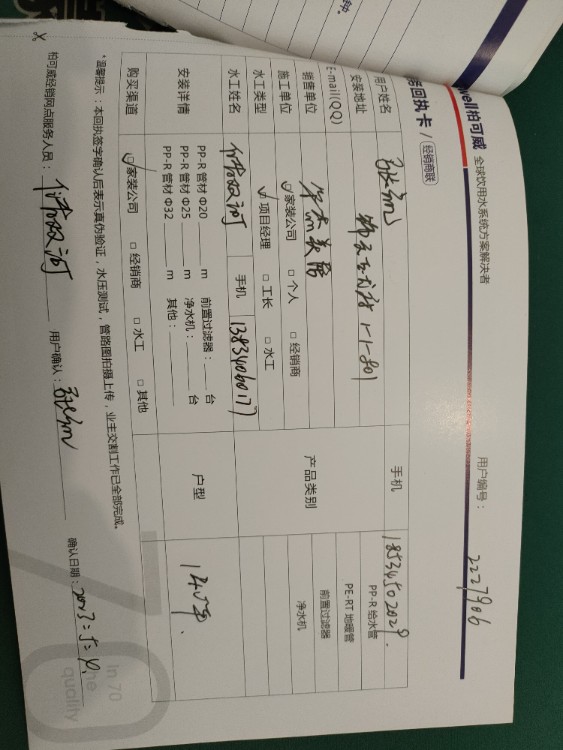 well柏可威 全球饮用水系统方案解决者
用户编号: 2227906
回执卡 / 经销商联
用户姓名 手机 18534502029
安装地址 1-1-801 PP-R 给水管
E-mail(QQ) PE-RT 地暖管
销售单位 产品类别 前置过滤器
施工单位 ☑家装公司 □个人 □经销商 净水机
水工类型 ☑项目经理 □工长 □水工
水工姓名 双河 手机 13834060177
安装详情 PP-R 管材 Φ20 m 前置过滤器: 台 户型
PP-R 管材 Φ25 m 净水机: 台
PP-R 管材 Φ32 m 其他:
购买渠道 ☑家装公司 □经销商 □水工 □其他
*温馨提示:本回执签字确认后表示真伪验证,水压测试,管路图拍摄上传,业主交割工作已全部完成。
柏可威经销网点服务人员: 双河 用户确认: 确认日期: 2023
In 70
he
quality